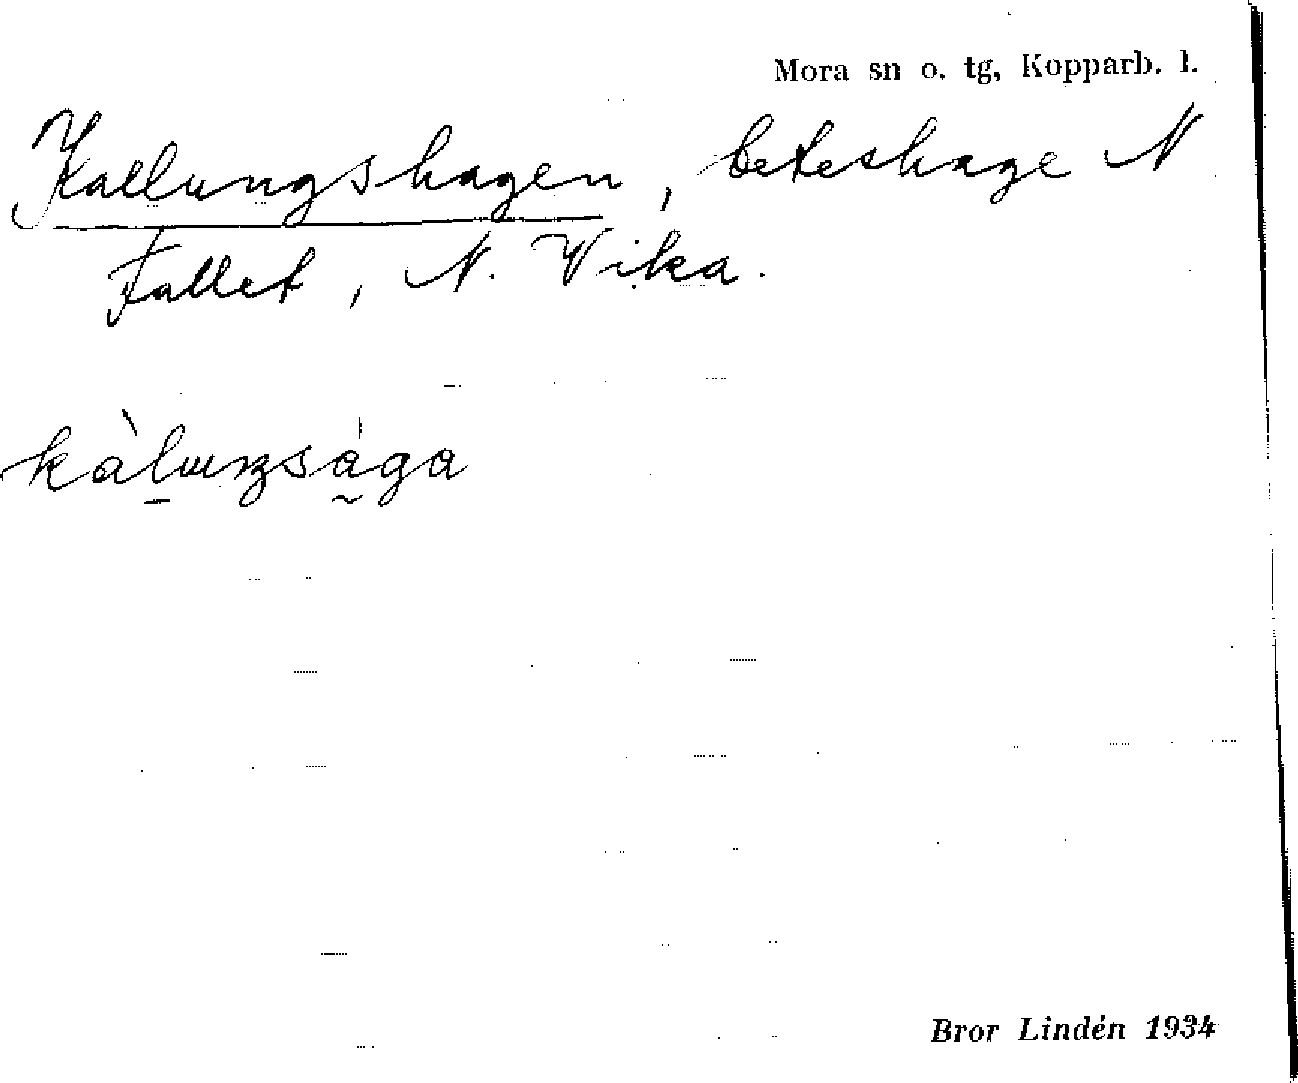 Mora sn o. tg, Kopparb. l.
Kallungshagen, beteshage N
Fallet, N. Vika.
kàluŋsága
Bror Lindén 1934